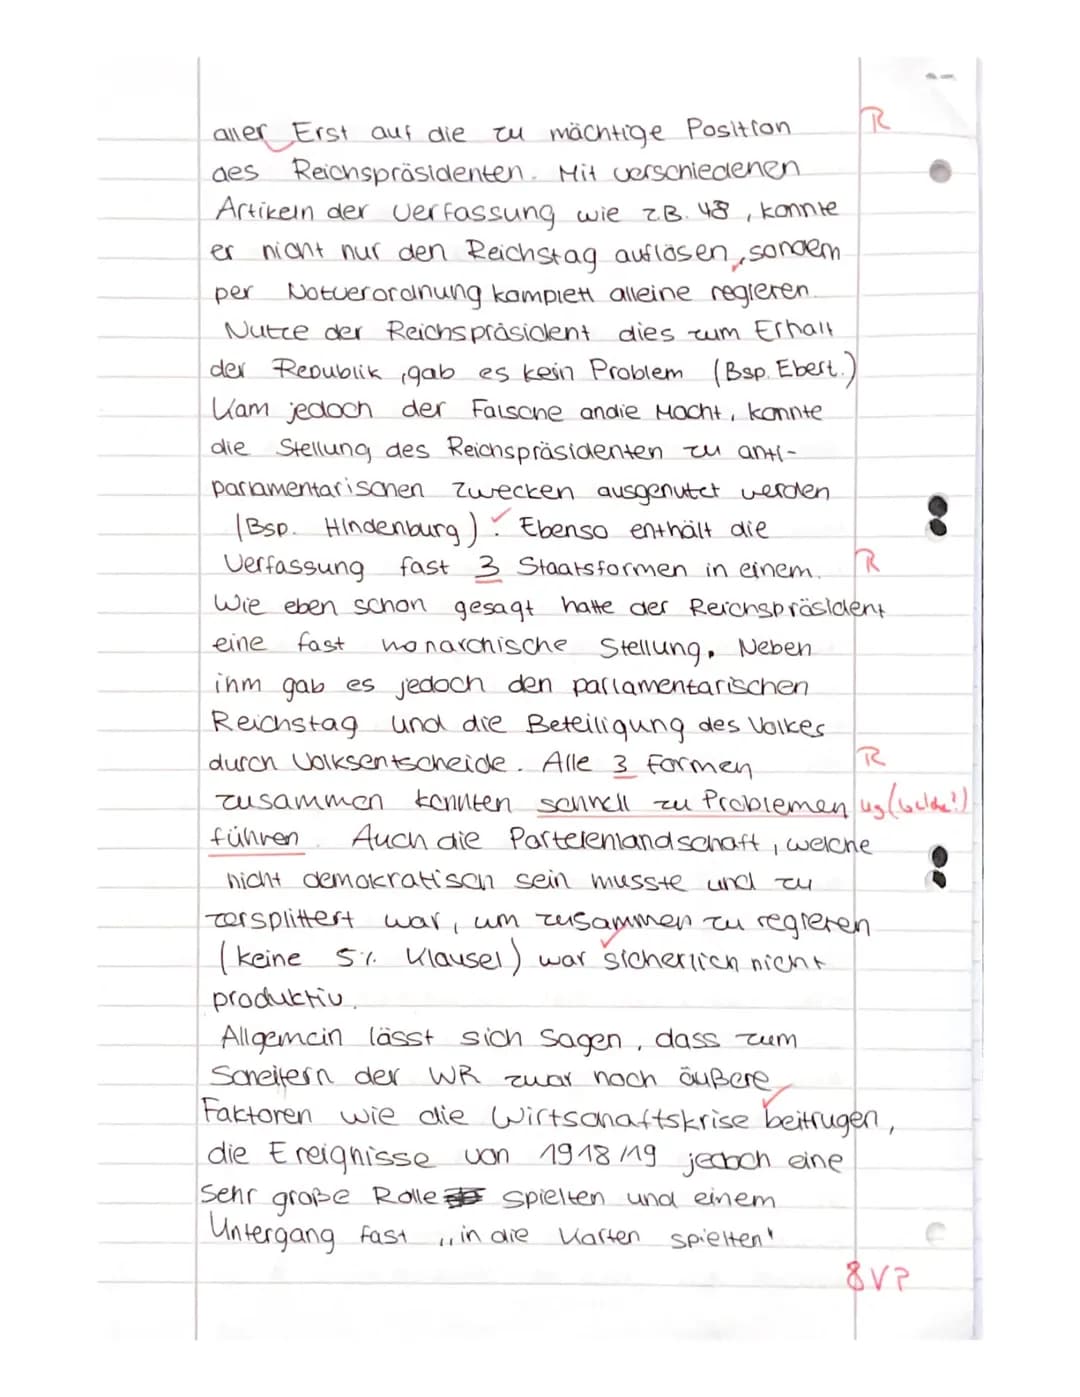 aller Erst auf die zu mächtige Position R
des Reichspräsidenten. Mit verschiedenen
Artikeln der Verfassung wie z.B. 48, konnte
er nicht nur den Reichstag auflösen, sondern
per Notverordnung komplett alleine regieren.
Nutze der Reichspräsident dies zum Erhalt
der Republik, gab es kein Problem (Bsp. Ebert.)
Kam jedoch der Falsche an die Macht, konnte
die Stellung des Reichspräsidenten zu anti-
parlamentarischen Zwecken ausgenutzt werden
(Bsp. Hindenburg). Ebenso enthält die
Verfassung fast 3 Staatsformen in einem. R
Wie eben schon gesagt hatte der Reichspräsident
eine fast monarchische Stellung. Neben
ihm gab es jedoch den parlamentarischen
Reichstag und die Beteiligung des Volkes
durch Volksentscheide. Alle 3 Formen R
zusammen konnten schnell zu Problemen ug (welche?)
führen. Auch die Parteienlandschaft, welche
nicht demokratisch sein musste und zu
zersplittert war, um zusammen zu regieren
(keine 5% Klausel) war sicherlich nicht
produktiv.
Allgemein lässt sich Sagen, dass zum
Scheitern der WR zwar noch äußere
Faktoren wie die Wirtschaftskrise beitrugen,
die Ereignisse von 1918/19 jedoch eine
sehr große Rolle spielten und einem
Untergang fast „in die Karten spielten'
8V?